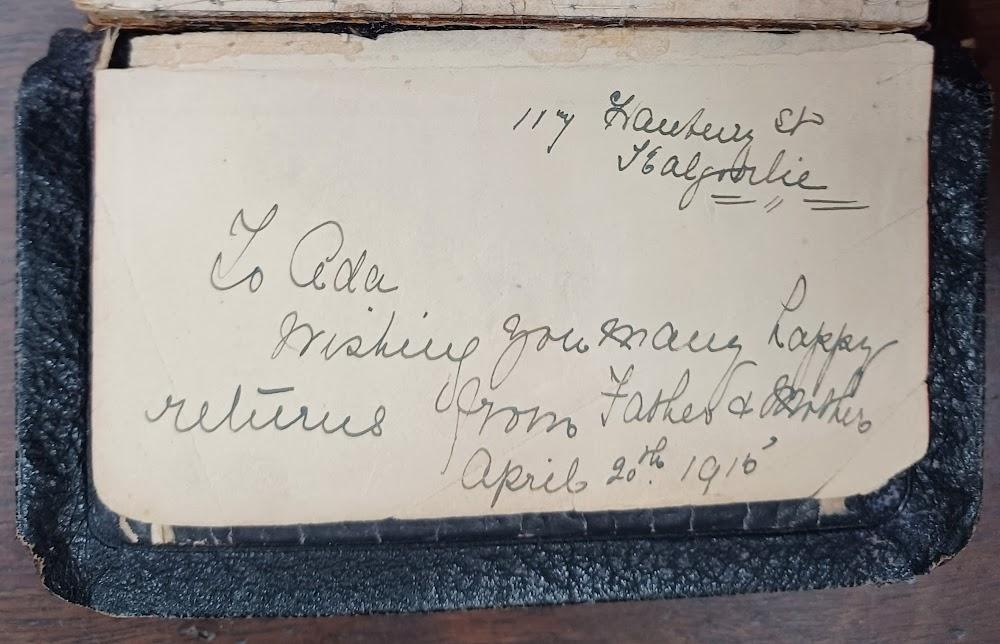 117 Hanbury St
Kalgoorlie
To Ada
Wishing you many happy
returns from Father & Mother
April 20th. 1916